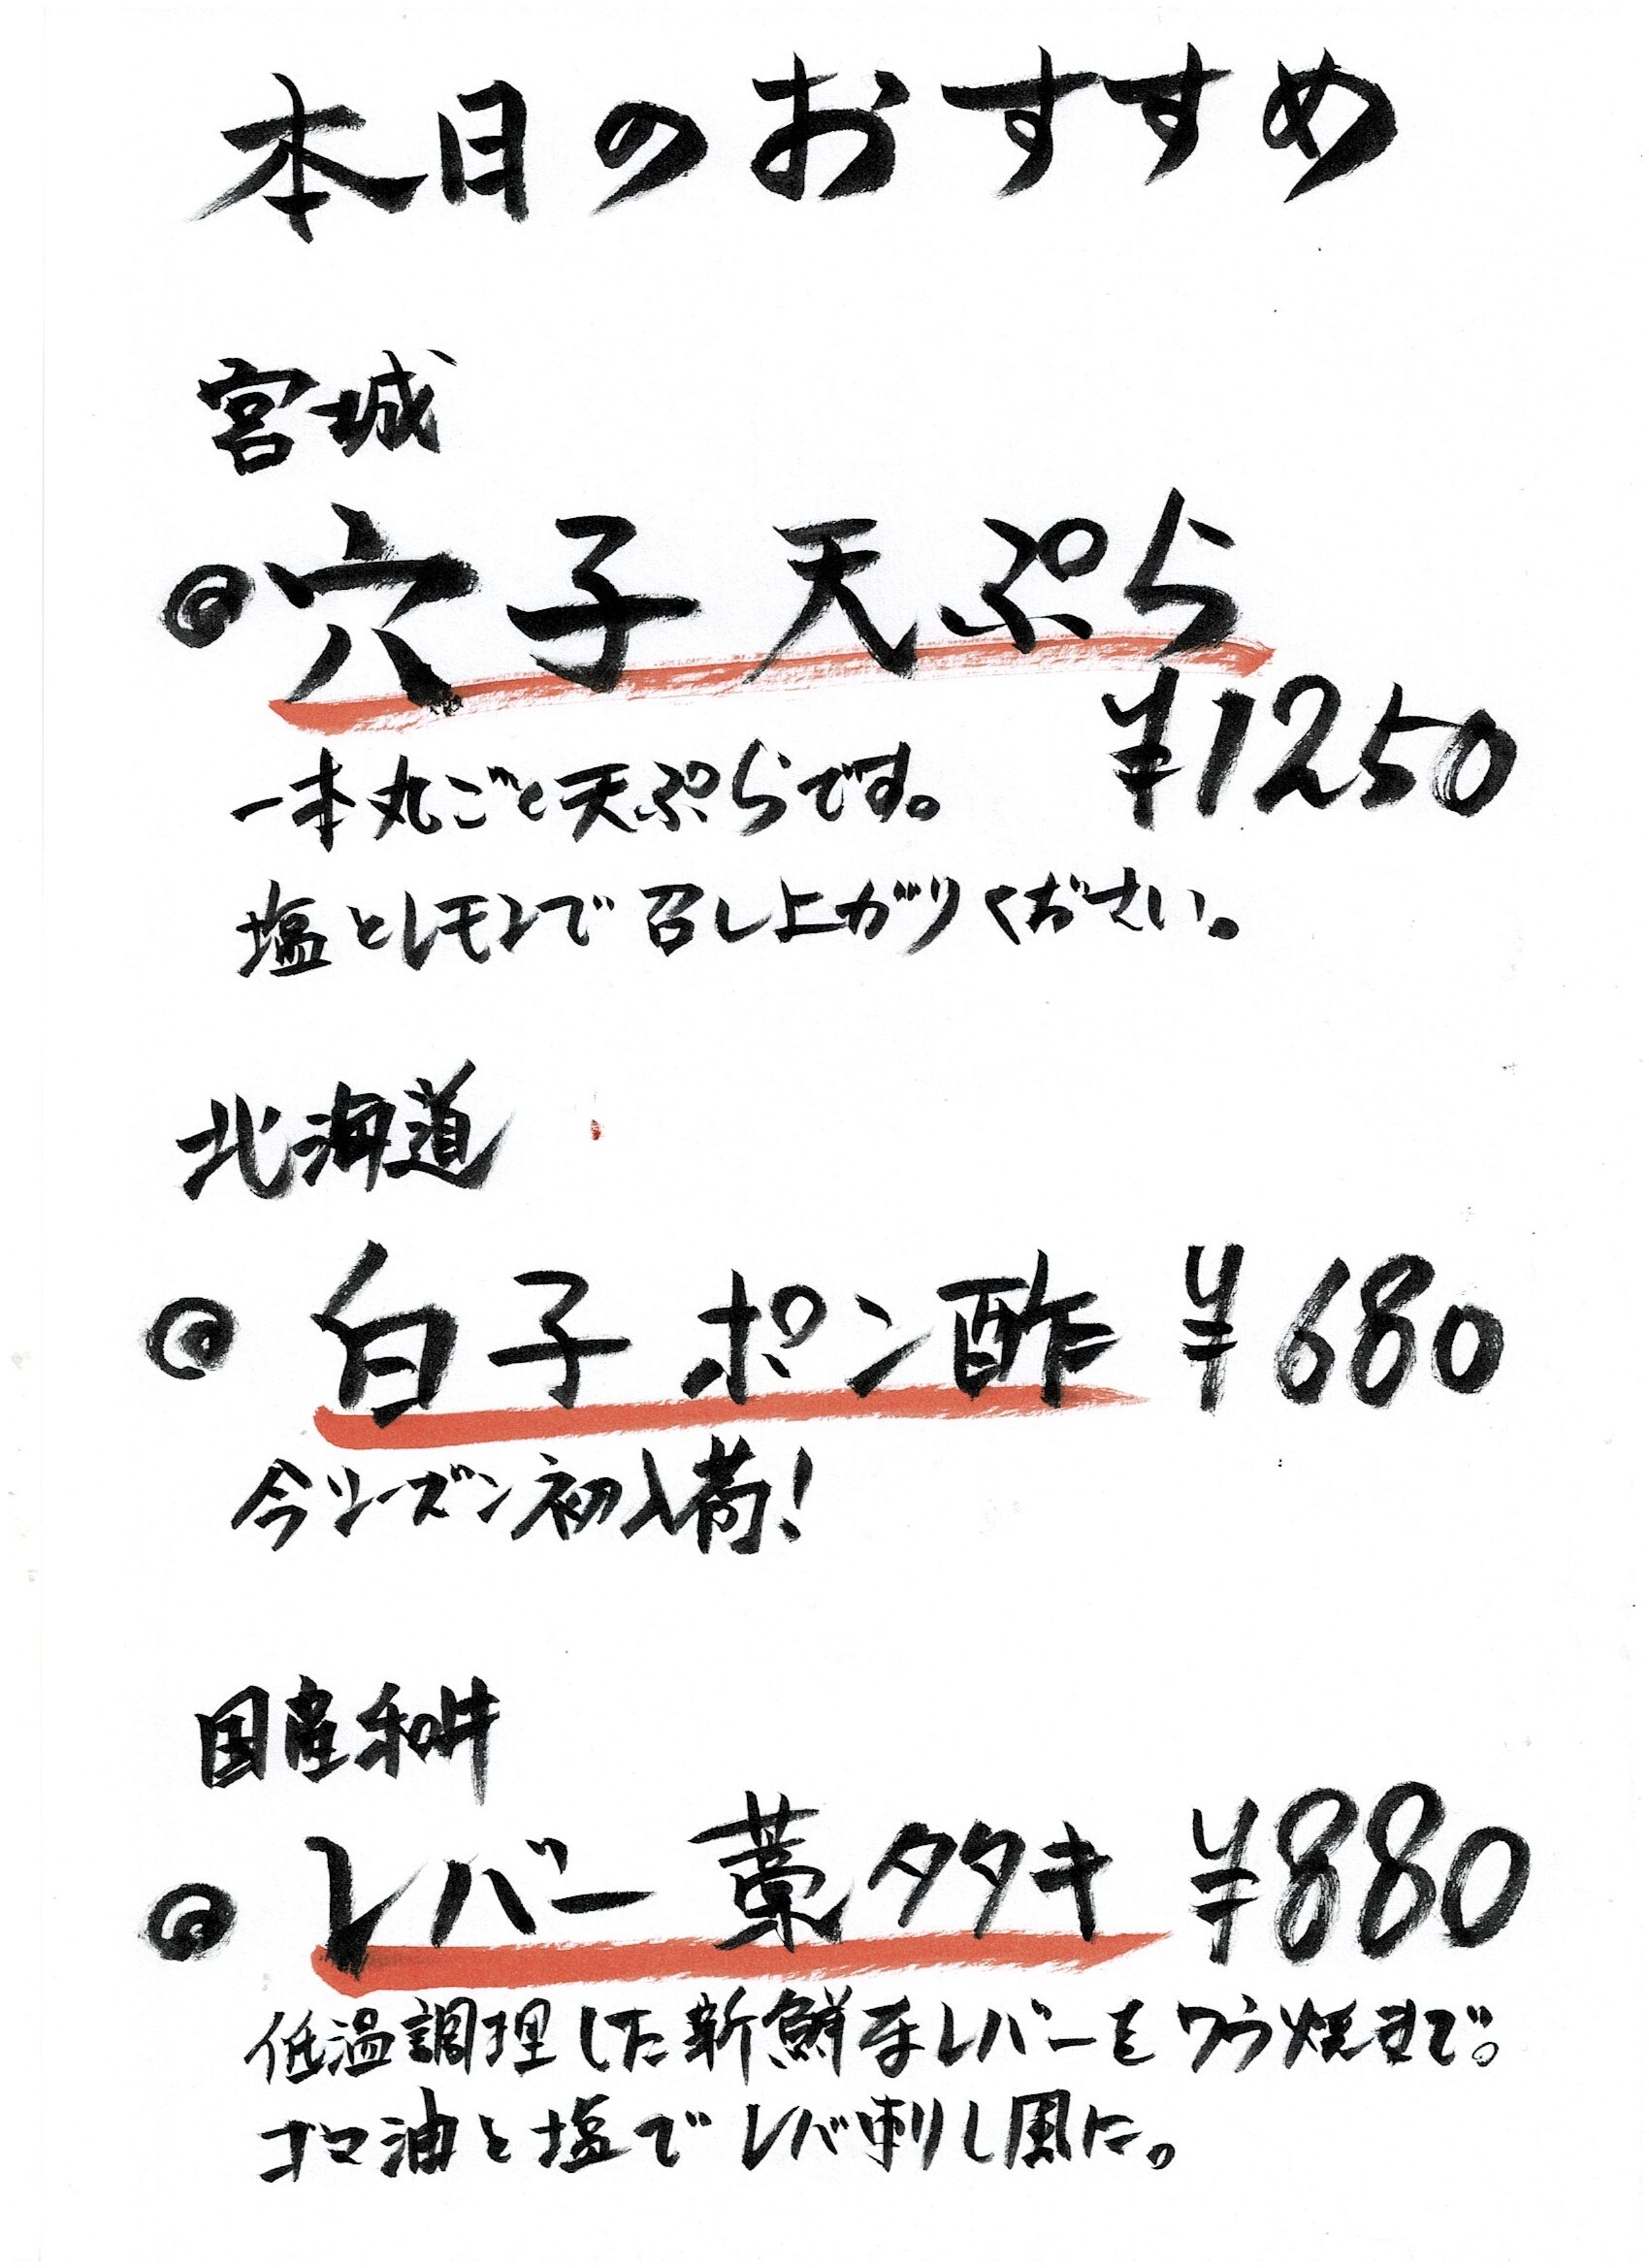 本日のおすすめ
宮城
◎穴子天ぷら
¥1250
一本丸ごと天ぷらです。
塩とレモンで召し上がりください。
北海道
◎白子ポン酢 ¥680
今シーズン初入荷!
国産和牛
◎レバー藁タタキ ¥880
低温調理した新鮮なレバーをワラ焼きで。
ゴマ油と塩でレバ刺し風に。